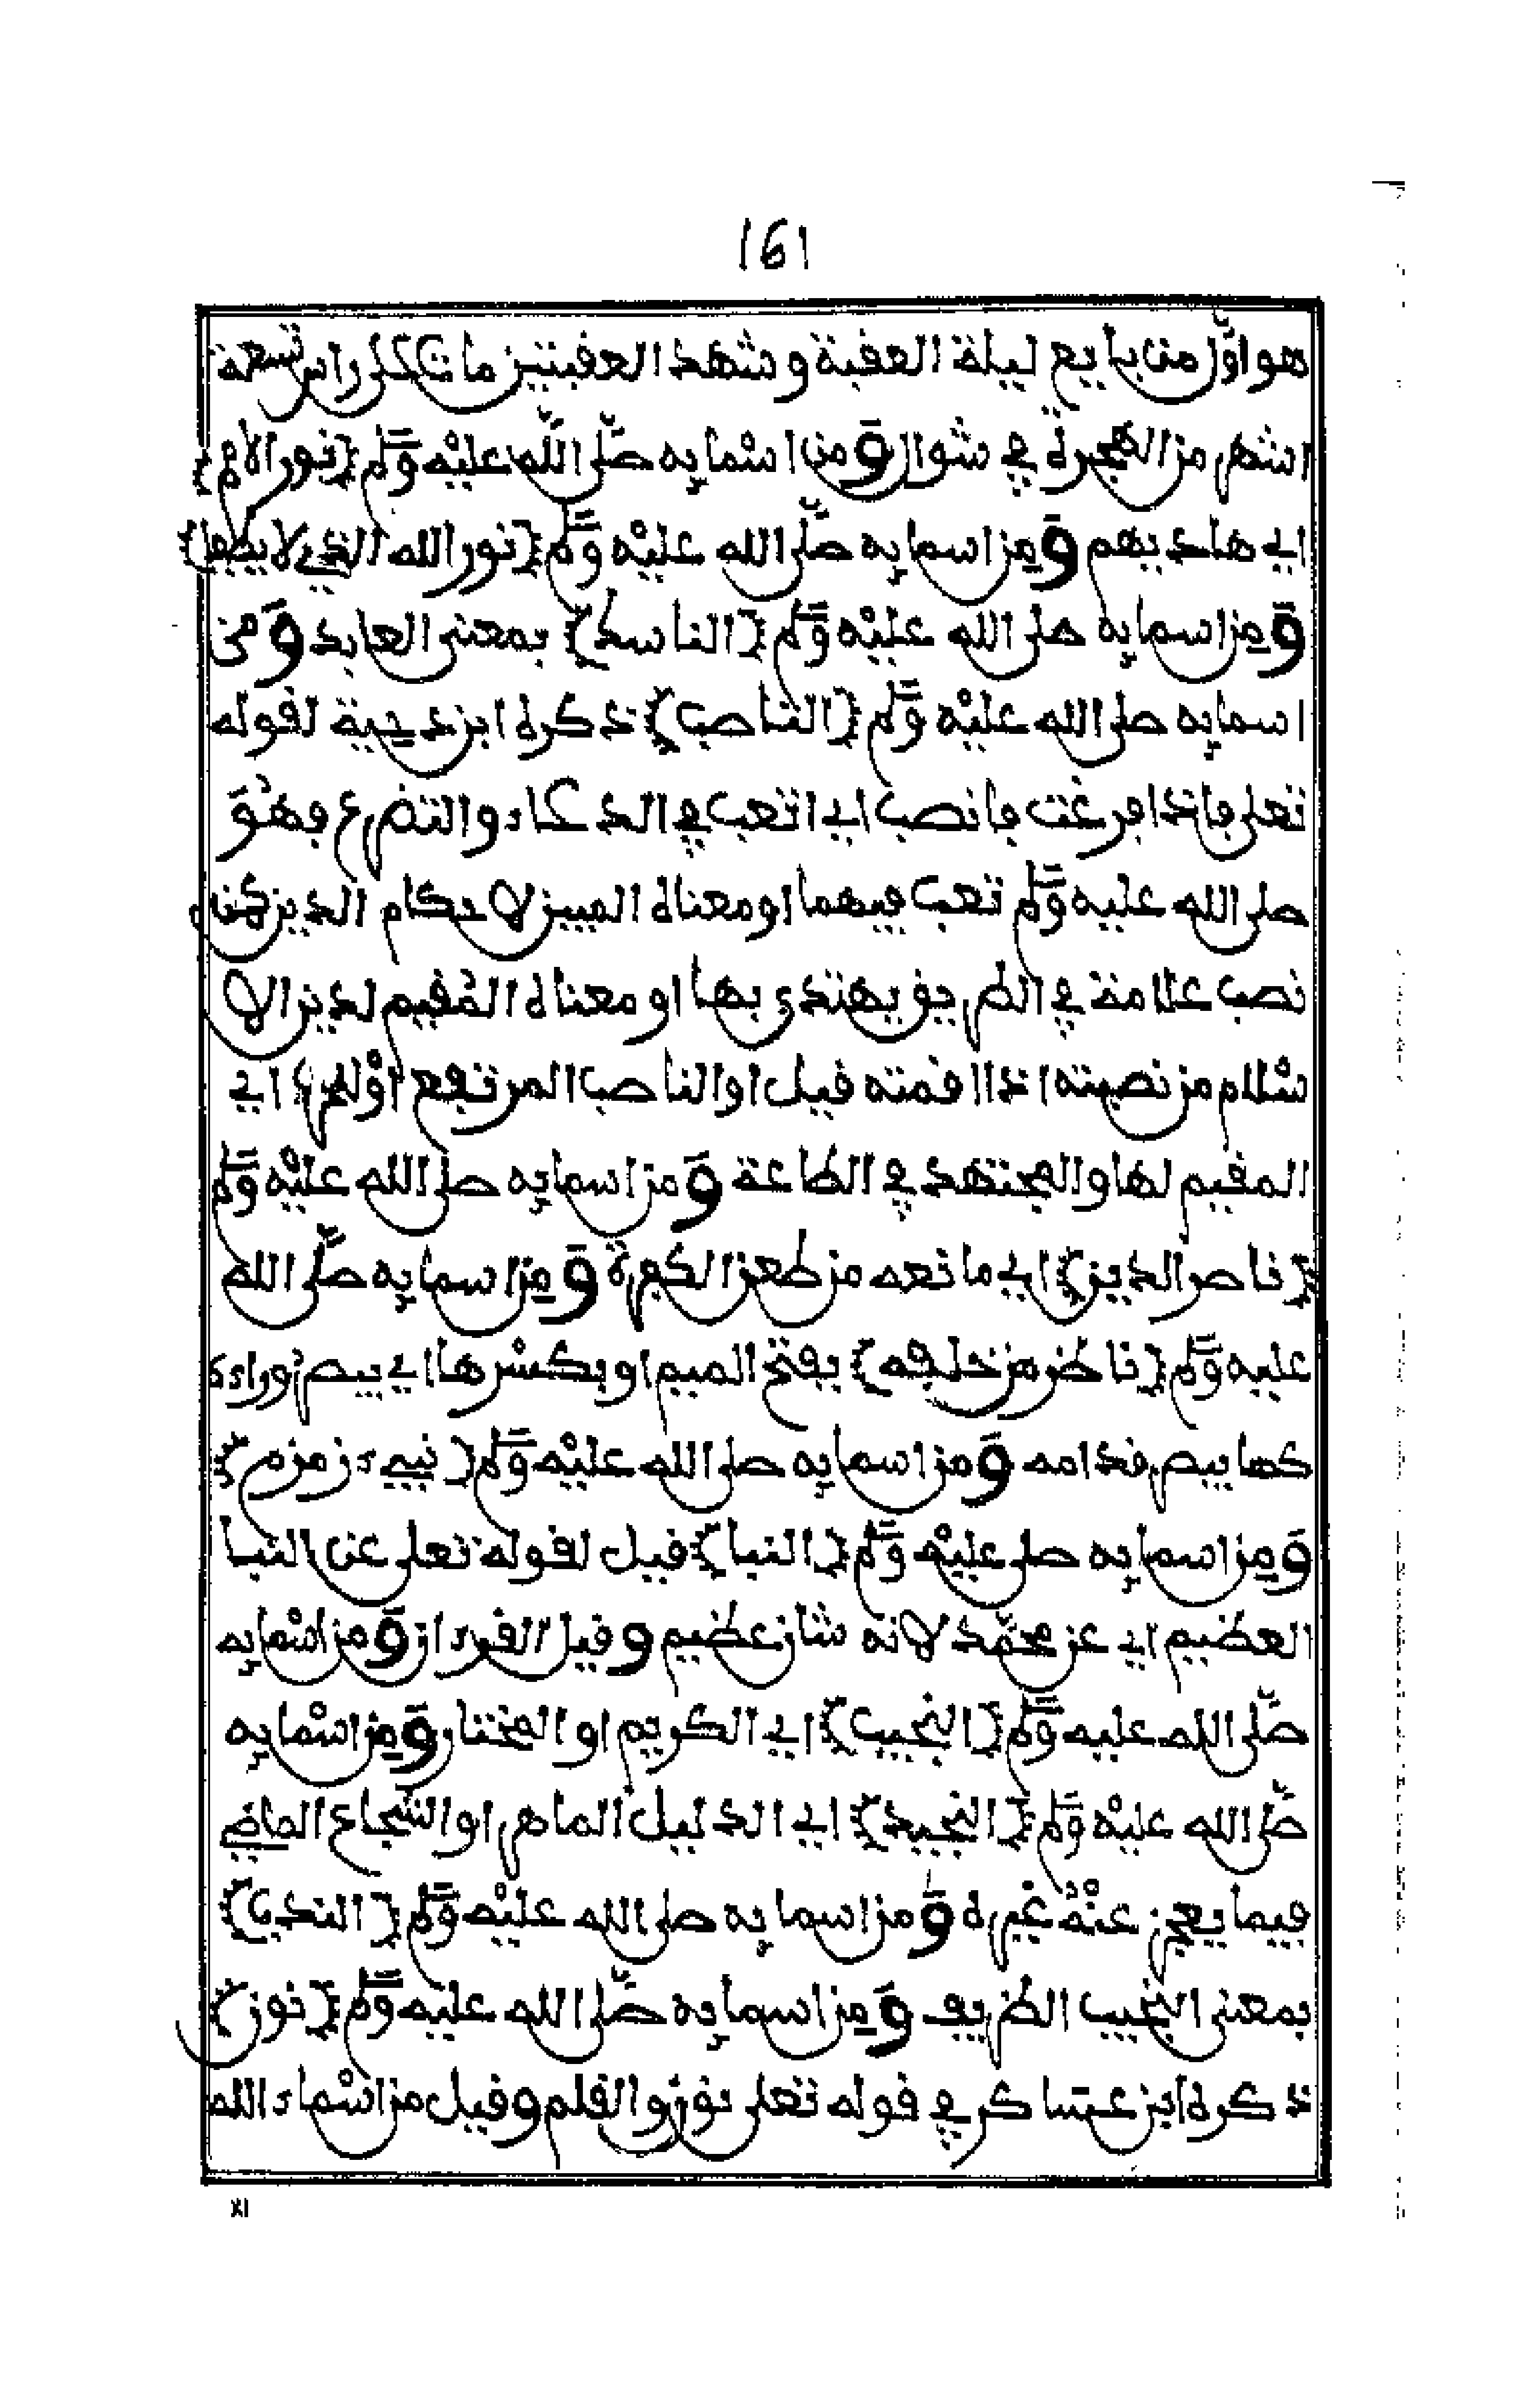 161
هو اول من بايع ليلة العقبة وشهد العقبتين مات على راس تسعة
اشهر من الهجرة في شوال ومن اسمايه صلى الله عليه وسلم {نور الامم}
اي هاديهم ومن اسمايه صلى الله عليه وسلم {نور الله الذي لا يطفا}
ومن اسمايه صلى الله عليه وسلم {الناسك} بمعنى العابد ومن
اسمايه صلى الله عليه وسلم {الناصب} ذكره ابن دحية لقوله
تعلى فاذا فرغت فانصب اي اتعب في الدعاء والتضرع فهو
صلى الله عليه وسلم تعب فيهما او معناه المبين لاحكام الدين من
نصب علامة في الطريق يهتدي بها او معناه المقيم لدين الا
سلام من نصبته اذا اقمته قيل او الناصب المرتفع اي
المقيم لها والمجتهد في الطاعة ومن اسمايه صلى الله عليه وسلم
{ناصر الدين} اي مانعه من طعن الكفرة ومن اسمايه صلى الله
عليه وسلم {ناظر من خلفه} بفتح الميم او بكسرها اي يبصر وراءه
كما يبصر قدامه ومن اسمايه صلى الله عليه وسلم {نبيء زمزم}
ومن اسمايه صلى عليه وسلم {النبا} قيل لقوله تعلى عن النبا
العظيم اي عن محمد لانه شان عظيم وقيل القرءان ومن اسمايه
صلى الله عليه وسلم {النجيب} اي الكريم او المختار ومن اسمايه
صلى الله عليه وسلم {النجيد} اي الدليل الماهر او الشجاع الماضي
فيما يعجز عنه غيره ومن اسمايه صلى الله عليه وسلم {الندب}
بمعنى النجيب الظريف ومن اسمايه صلى الله عليه وسلم {نون}
ذكره ابن عساكر في قوله تعلى نون والقلم وقيل من اسماء الله
XI